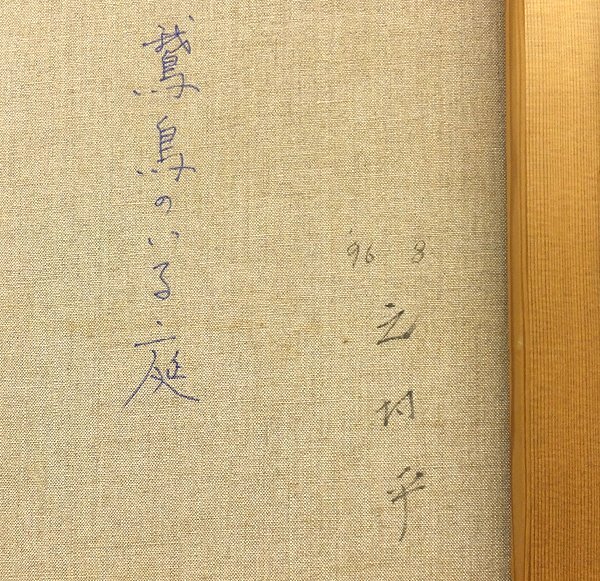 '96 8
元村平
鵞鳥のいる庭